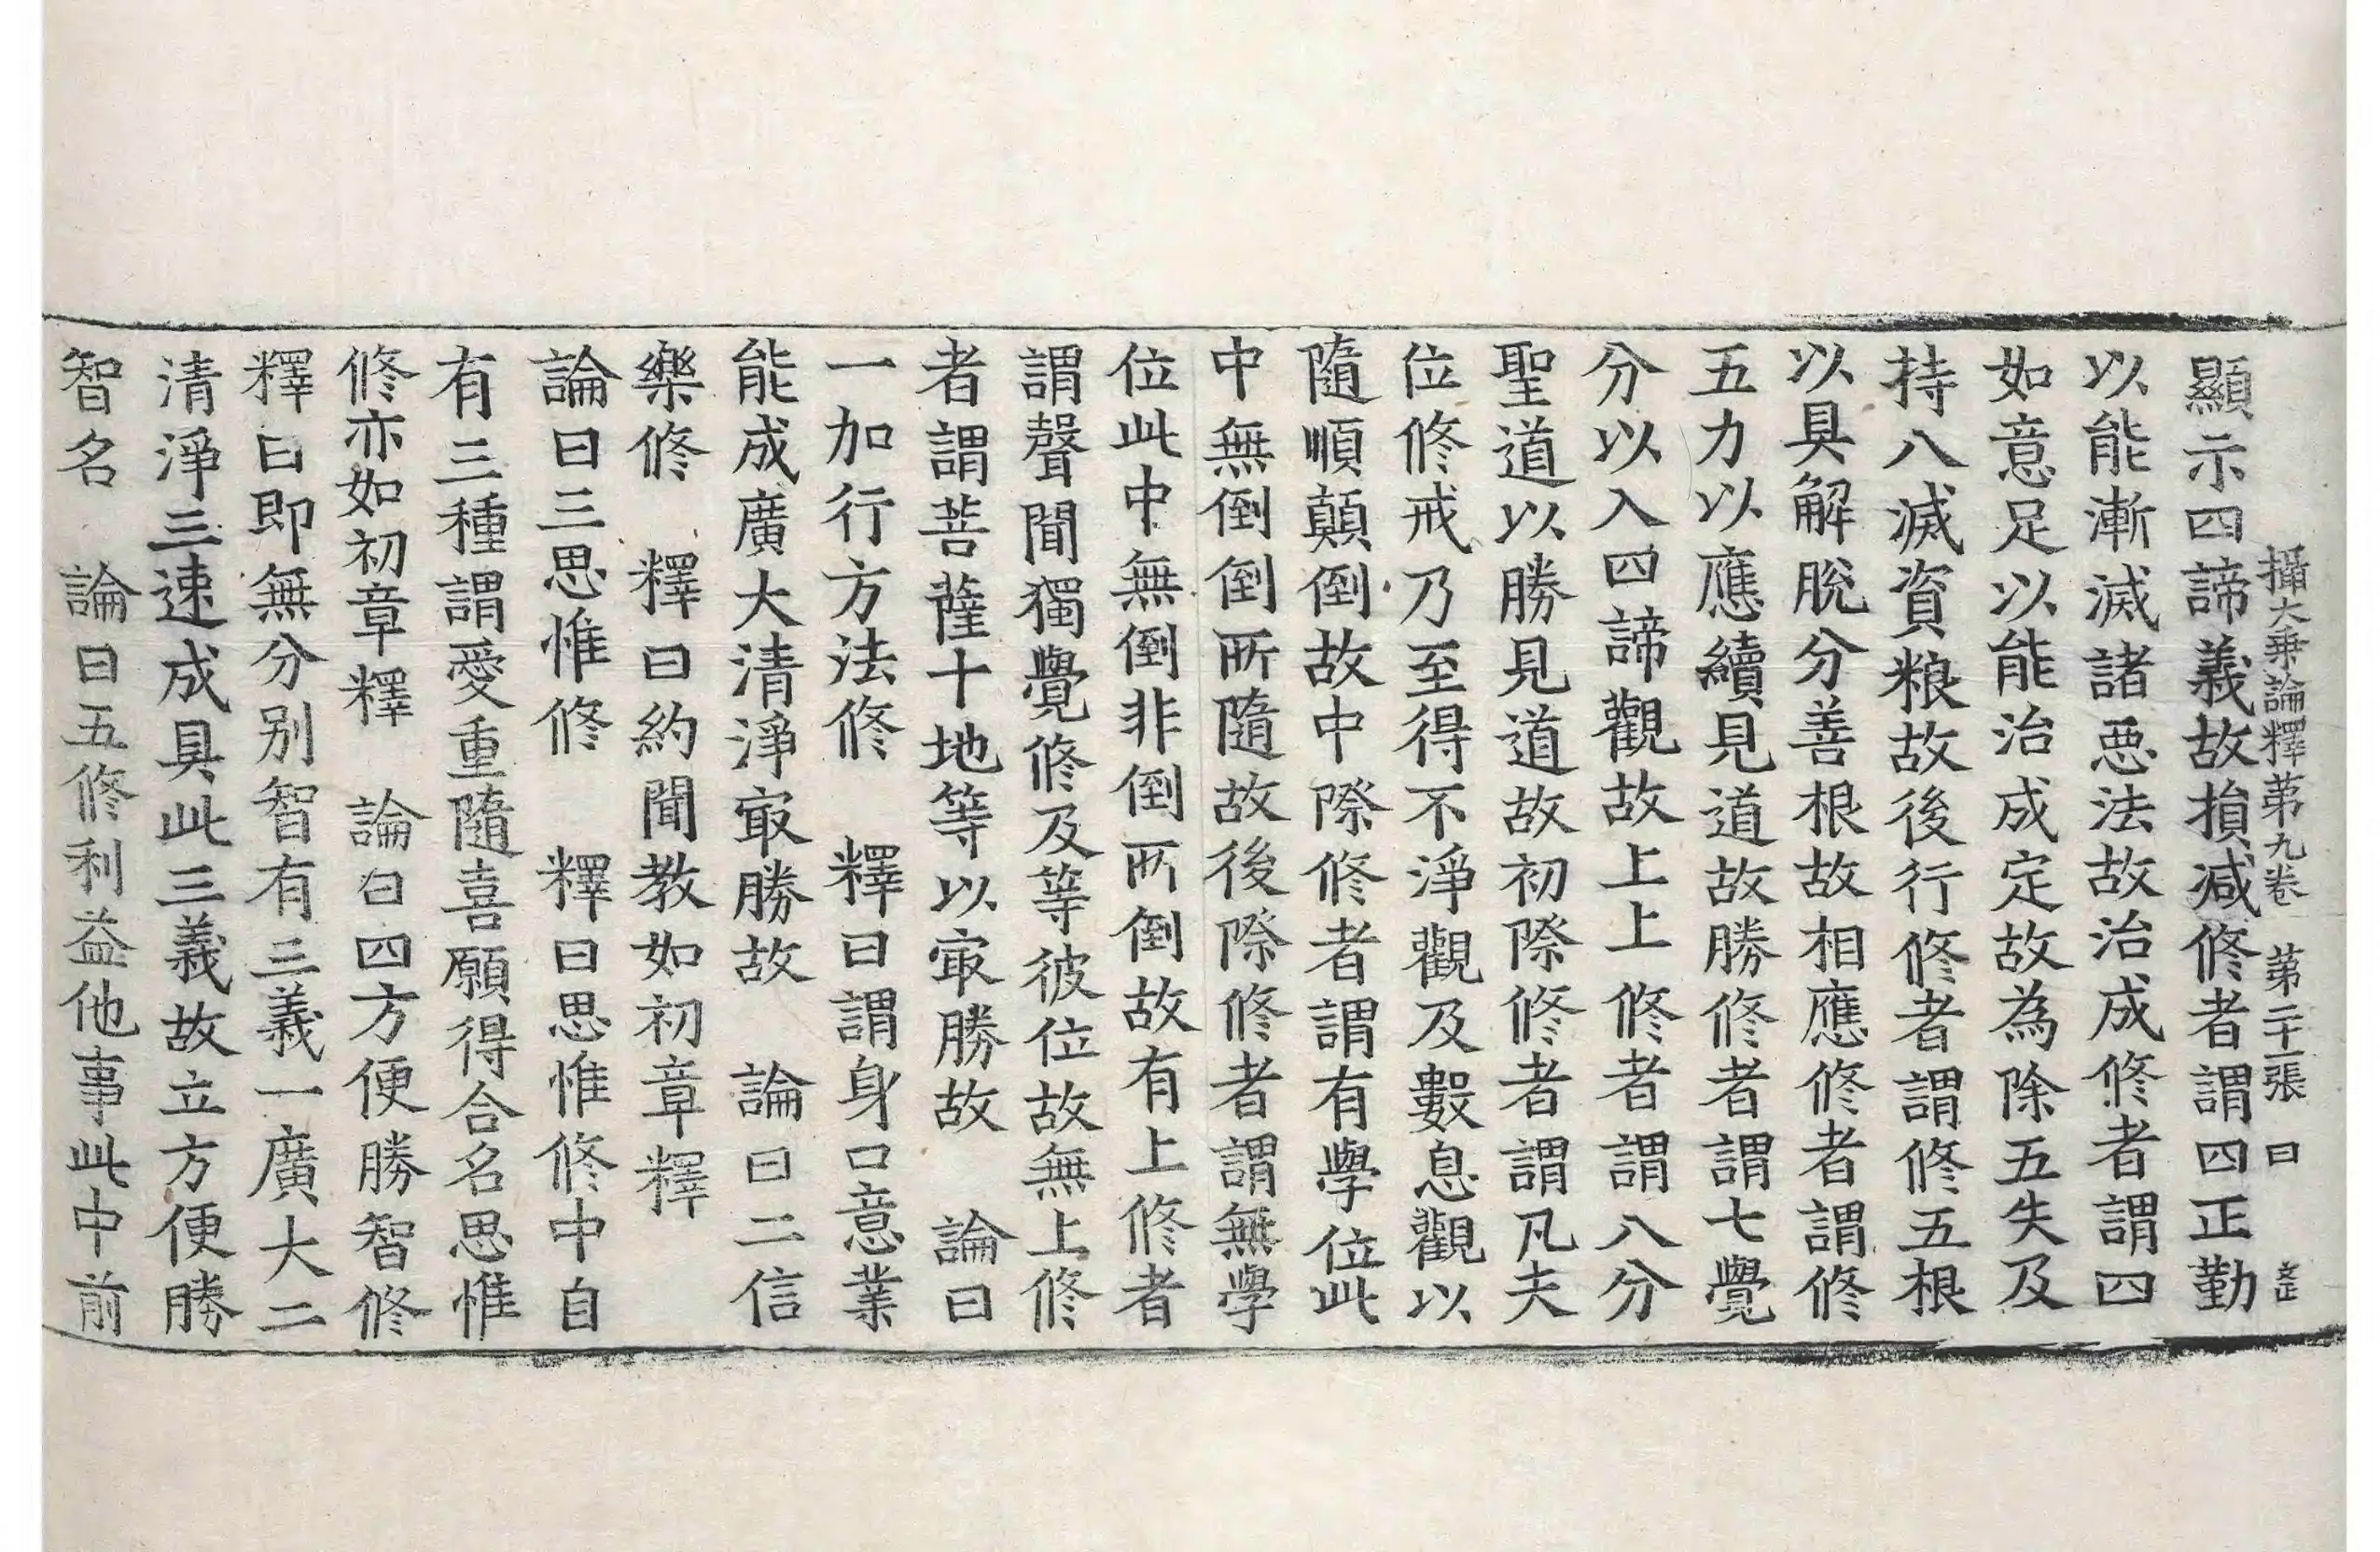 攝大乗論釋第九卷 第二十一張 曰
顯示四諦義故損減修者謂四正勤
以能漸滅諸惡法故治成修者謂四
如意足以能治成定故為除五失及
持八滅資粮故後行修者謂修五根
以具解脫分善根故相應修者謂修
五力以應續見道故勝修者謂七覺
分以入四諦觀故上上修者謂八分
聖道以勝見道故初際修者謂凡夫
位修戒乃至得不淨觀及數息觀以
隨順顛倒故中際修者謂有學位此
中無倒倒所隨故後際修者謂無學
位此中無倒非倒所倒故有上修者
謂聲聞獨覺修及等彼位故無上修
者謂菩薩十地等以㝡勝故 論曰
一加行方法修 釋曰謂身口意業
能成廣大清淨㝡勝故 論曰二信
樂修 釋曰約聞教如初章釋
論曰三思惟修 釋曰思惟修中自
有三種謂愛重隨喜願得合名思惟
修亦如初章釋 論曰四方便勝智修
釋曰即無分别智有三義一廣大二
清淨三速成具此三義故立方便勝
智名 論曰五修利益他事此中前